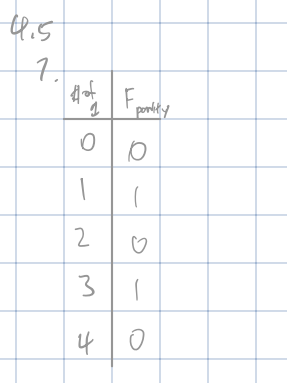 4.5
1.
# of 1 F parity
0 0
1 1
2 0
3 1
4 0